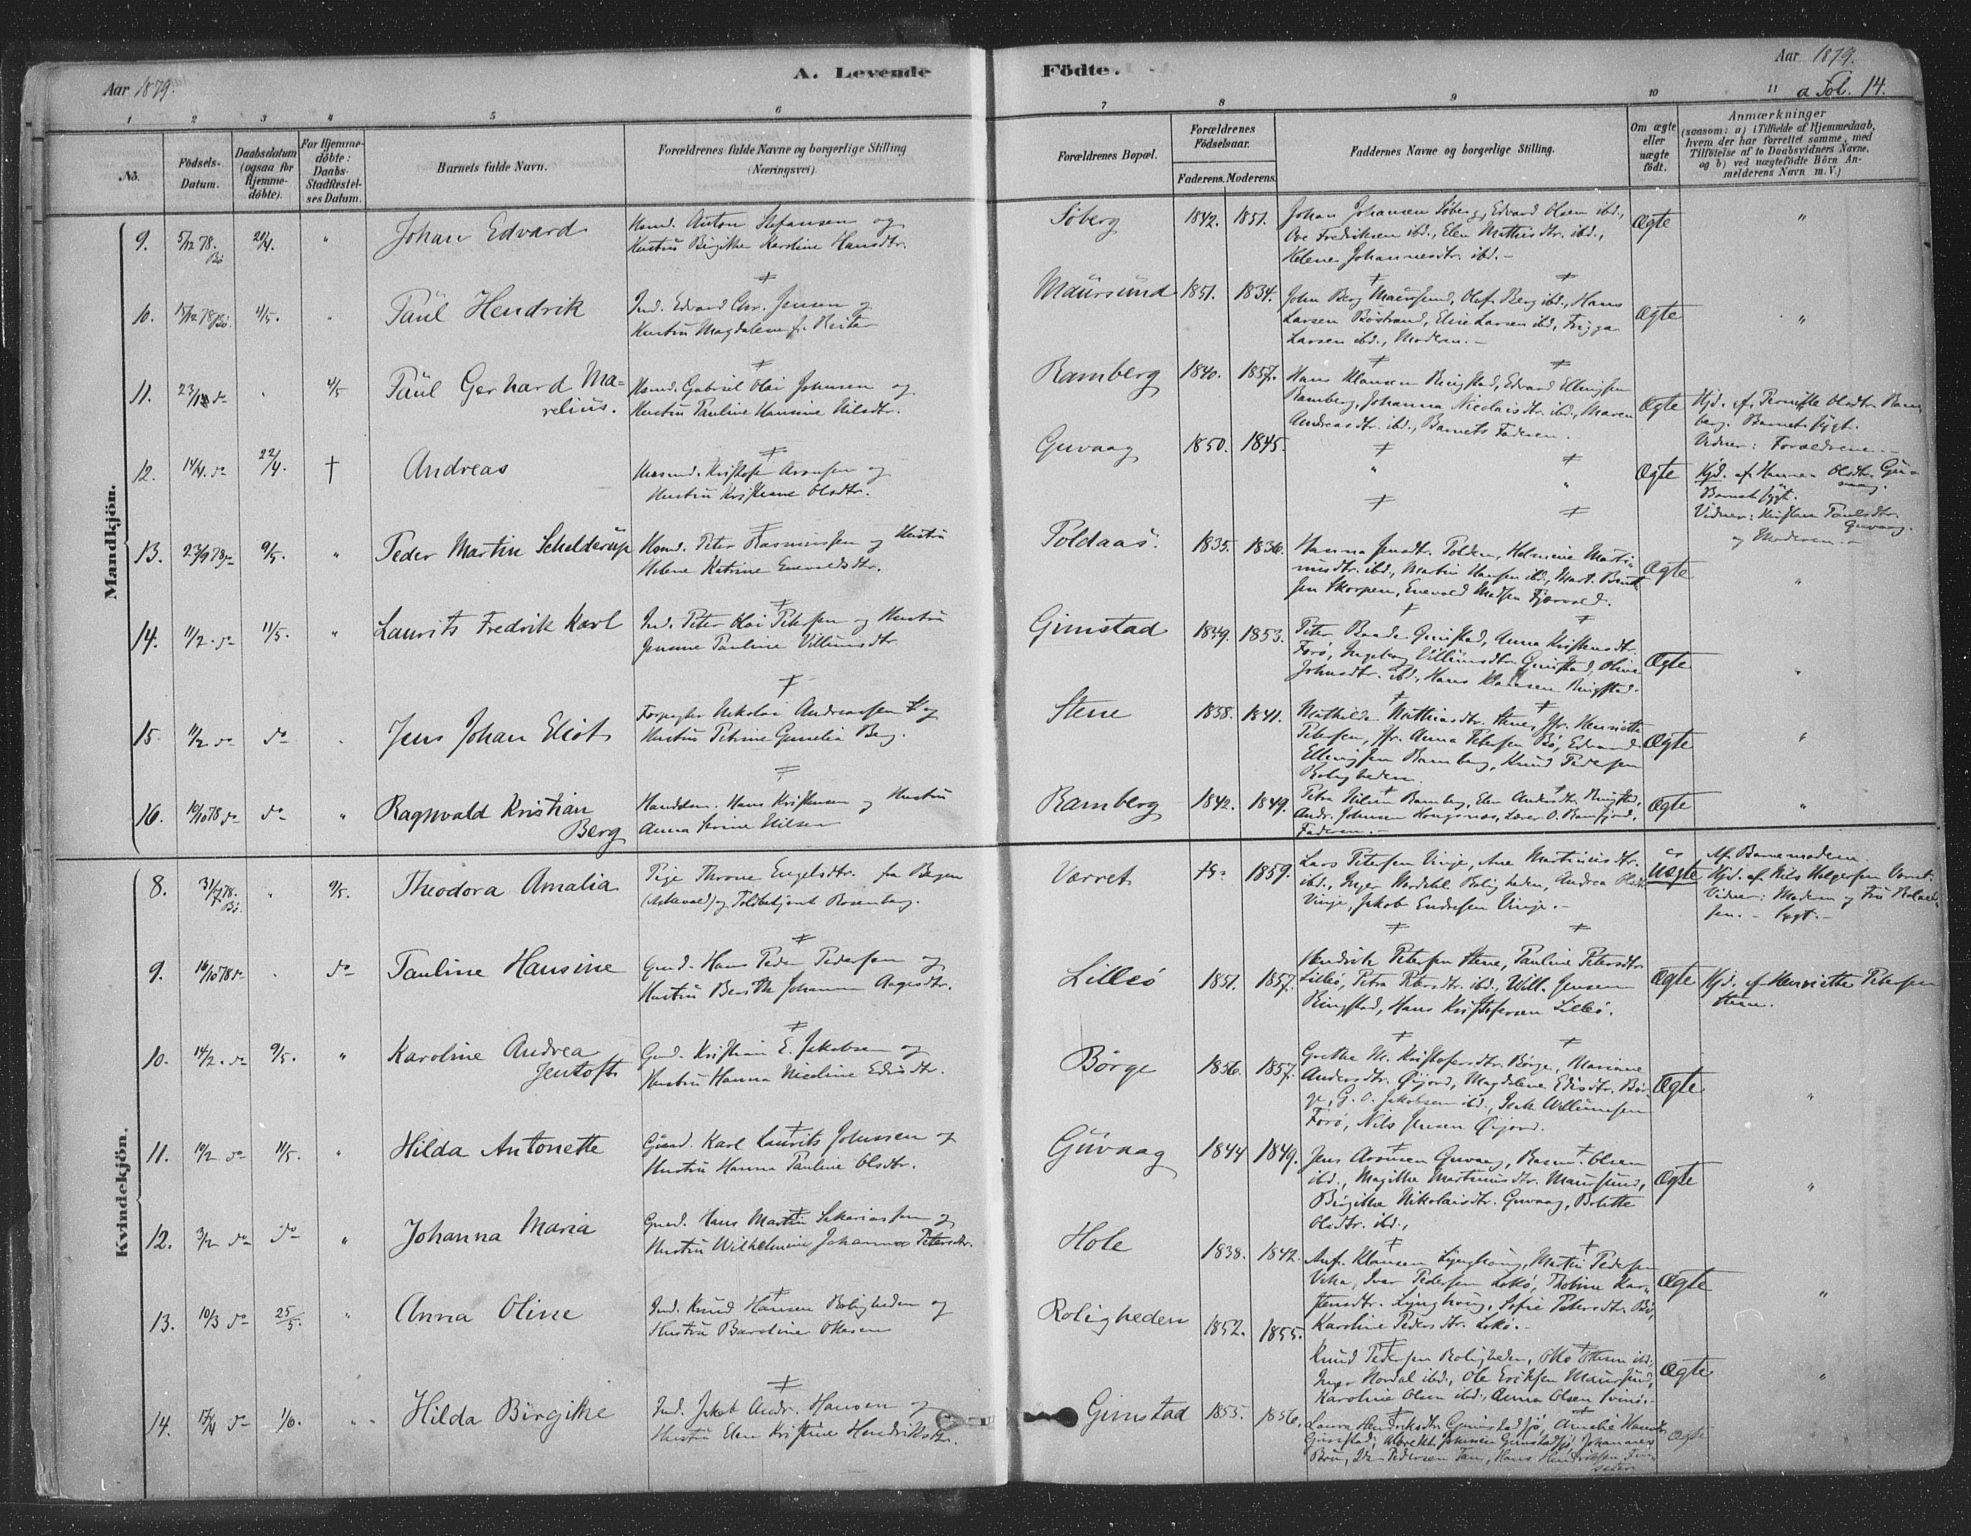 Aar 1879.
A. Levende
Födte.
Aar 1879.
a Fol. 14.
1 2 3 4 5 6 7 8 9 10 11
No.
Födsels-Datum.
Daabsdatum (ogsaa for Hjemmedöbte).
For Hjemmedöbte: Daabs-Stadfæstelses Datum.
Barnets fulde Navn.
Forældrenes fulde Navne og borgerlige Stilling (Næringsvei)
Forældrenes Bopæl.
Forældrenes Födselsaar.
Faderens. Moderens.
Faddernes Navne og borgerlige Stilling.
Om ægte eller uægte födt.
Anmærkninger
(saasom: a) i Tilfælde af Hjemmedaab, hvem der har forrettet samme, med Tilföielse af to Daabsvidners Navne, og b) ved uægtefödte Börn Anmelderens Navn m. V.)
Mandkjön.
9. 5/12 78. Bö 21/4. " Johan Edvard
Anton Stefansen og
Hustru Birgitte Karoline Hansdtr.
Söberg 1842. 1851.
Johan Johansen Söberg, Edvard Olsen ibd.,
Ove Fredriksen ibd., Elen Mathisdtr. ibd.,
Helene Johannesdtr. ibd. –
Ægte "
10. 1/5. Paul Hendrik
Ind. Edvard Chr. Jensen og
Hustru Magdalena f. Reita
Maursund 1851. 1834.
John Berg Maursund, Olof Berg ibd., Hans
Larsen Böstrand, Elise Larsen ibd., Frigga
Larsen ibd., Moderen. –
Ægte "
11. 4/5 Paul Gerhard Ma-
relius.
Gabriel Olai Johnsen og
Hustru Pauline Hansine Nilsdtr.
Ramberg 1840. 1857.
Hans Klausen Ringstad, Edvard Ellingsen
Ramberg, Johanna Nicolaisdtr. ibd., Maren
Andreasdtr. ibd., Barnets Faderen.
Ægte
Hjd. af Pernille Olsdtr. Ram-
berg. Barnet sygt.
Vidner: Forældrene. –
12. 14/4. do 22/4. † Andreas
Kristofer Aronsen og
Hustru Kristiane Olsdtr.
Guvaag 1850. 1845.
" "
Ægte
Hjd. af Hanna Olsdtr. Gu-
vaag.
Barnet sygt.
Vidner: Kristian Paulsdtr.
Guvaag
og Moderen. –
13. 23/9 78 do 9/5. " Peder Martin Schelderup
Peter Rasmussen og Hustru
Helene Katrine Enevoldsdtr.
Poldaas. 1835. 1836.
Hanna Jensdtr. Polden, Holmine Marti-
nusdtr. ibd., Martin Hansen ibd., Mart. Bent-
sen Skorpen, Enevold Madsen Fjærvold.
Ægte "
14. 11/2. do 11/5. " Laurits Fredrik Karl
Ind. Peter Olai Petersen og Hustru
Jensine Pauline Villumsdtr.
Gimstad 1849. 1853.
Peter Baade Gimstad, Anna Kristensdtr.
Forö, Ingeborg Villumsdtr. Gimstad, Oline
Johnsdtr. ibd., Hans Klausen Ringstad.
Ægte "
15. 11/2 do do Jens Johan Eliot
Forpagter Nikolai Andreassen og
Hustru Petrine Gunelia Berg.
Stene 1838. 1841.
Mathilde Mathiasdtr. Stene, Jfr. Henriette
Petersen, Jfr. Anna Petersen Bö, Edvard
Ellingsen Ramberg, Knud Pedersen
Roligheden.
Ægte "
16. 10/10 78 do do " Ragnvald Kristian
Berg
Handelsm. Hans Kristensen og Hustru
Anna Serine Nilsen
Ramberg 1842. 1849.
Petra Nilsen Ramberg, Elen Andersdtr. Ringstad,
Andr. Johnsen Kongsnæs, Lærer O. Ramfjord,
Faderen. –
Ægte "
Kvindekjön.
8. 31/7 78. Bö. " 9/5. Theodora Amalia
Pige Throne Engelsdtr. fra Bergen
(Askevold) og Toldbetjent Rosenberg.
Værret 1859.
Lars Petersen Vinje, Ane Martinusdtr.
ibd., Inger Nordahl Roligheden, Andrea Olsdtr.
Vinje, Jakob Endresen Vinje. –
Uægte
Af Barnemoderen.
Hjd. af Nils Holgersen Værret.
Vidner: Moderen og Fru Roland-
sen. – Sygt. –
9. 16/10 78 do do Pauline Hansine
Gmd. Hans Peder Pedersen og
Hustru Berith Johanna Aagesdtr.
Lillö 1851. 1857.
Hendrik Petersen Stene, Pauline Petersdtr.
Lillö, Petra Petersdtr. ibd., Will. Jensen
Ringstad, Hans Kristofersen Lillö.
Ægte
Hjd. af Henriette Petersen
Stene.
10. 14/2. do 9/5. " Karoline Andrea
Jentoft
Gmd. Kristian E. Jakobsen og
Hustru Hanna Nicoline Edisdtr.
Börge 1856. 1857.
Grethe M. Kristofersdtr. Börge, Mariane
Andersdtr. Öijord, Magdalene Edisdtr. Bör-
ge, G. O. Jakobsen ibd., Willumsen
Forö, Nils Jensen Öijord.
Ægte "
11. 19/2 do 11/5. " Hilda Antonette
Gmd. Karl Laurits Johnsen og
Hustru Hanna Pauline Olsdtr.
Guvaag 1844 1849.
Jens Aronsen Guvaag, Rasm. Olsen
ibd., Magithe Martinusdtr. Maursund,
Birgithe Nikolaisdtr. Guvaag, Bolette
Olsdtr. ibd.,
Ægte "
12. 3/2 do do " Johanna Maria
Gmd. Hans Martin Sakariassen og
Hustru Wilhelmine Johanna Petersdtr.
Hole 1838. 1842.
Klausen Lynghaug, Martin Pedersen
Vika, Ivar Pedersen Lokö, Thobine Kar-
stensdtr. Lynghaug, Sofie Petersdtr. Bö,
Karoline Pedersdtr. Lokö. –
Ægte "
13. 10/3 do 25/5. " Anna Oline
Ind. Knud Hansen Roligheden og
Hustru Baroline Olsen
Roligheden 1852. 1855.
Knud Pedersen Roligheden, ibd.,
Inger Nordal ibd., Ole Eriksen Maursund,
Karoline Olsen ibd., Anna Olsen
Ægte "
14. 17/4 do 1/6. " Hilda Birgitte
Ind. Jakob Andr. Hansen og
Hustru Elen Kristine Hendriksdtr.
Gimstad 1855. 1856.
Laura Hendriksdtr. Gimstadsjö, Amalie Hansdtr.
Gimstad, Albrekt Johnsen Gimstadsjö, Johannes
Pedersen Hans Hendriksen
Ægte